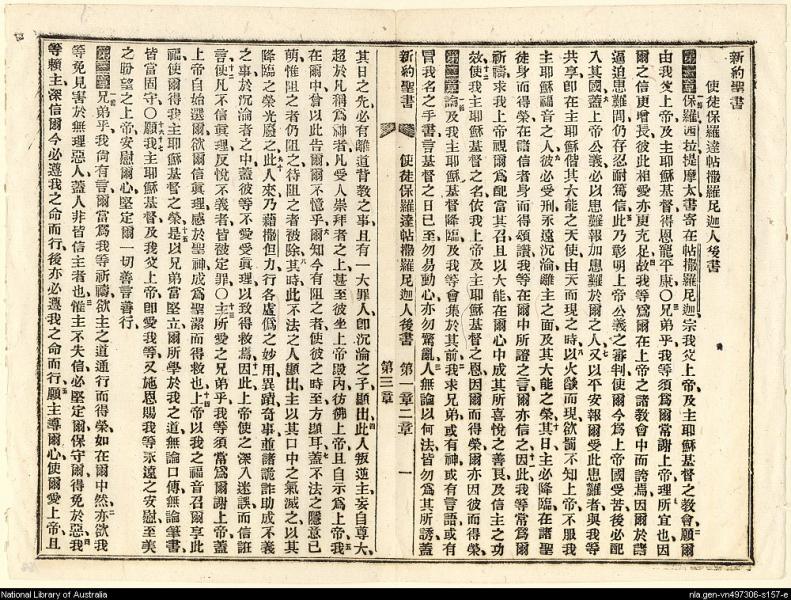 新約聖書
使徒保羅達帖撒羅尼迦人後書
第一章 保羅西拉提摩太書寄在帖撒羅尼迦宗我父上帝及主耶穌基督之教會願爾
由我父上帝及主耶穌基督得恩寵平康○兄弟乎我等須爲爾常謝上帝理所宜也因
爾之信更增長彼此相愛亦更充足故我等爲爾在上帝之諸教會中而誇焉因爾於諸
逼迫患難間仍存忍耐篤信此乃彰明上帝公義之審判使爾今爲上帝國受苦後必配
入其國蓋上帝公義必以患難報加患難於爾之人又以平安報爾受此患難者與我等
共享即在主耶穌偕其大能之天使由天而現之時以火燄而現欲罰不知上帝不服我
主耶穌福音之人彼必受刑永遠沉淪離主之面及其大能之榮其日主必降臨在諸聖
徒身而得榮在諸信者身而得頌讚我等在爾中所證之言爾亦信之因此我等常爲爾
祈禱求我上帝視爾爲配當其召且以大能在爾心中成其所喜悅之善良及信主之功
效使我主耶穌基督之名依我上帝及主耶穌基督之恩因爾而得榮爾亦因彼而得榮
第二章 論及我主耶穌基督降臨及我等會集於其前我求兄弟或有神或有言語或有
冒我名之手書言基督之日已至勿易動心亦勿驚亂人無論以何法皆勿爲其所誘蓋
新約聖書 使徒保羅達帖撒羅尼迦人後書 第一章二章 一
第三章
其日之先必有離道背教之事且有一大罪人即沉淪之子顯出此人叛逆主妄自尊大
超於凡稱爲神者凡受人崇拜者之上甚至彼坐上帝殿內彷彿上帝且自示爲上帝我
在爾中曾以此告爾爾不憶乎爾知今有阻之者使彼之時至方顯耳蓋不法之隱意已
萌惟阻之者仍阻之待阻之者被除其時此不法之人顯出主以其口中之氣滅之以其
降臨之榮光廢之此人來乃藉撒但力行各虛僞之妙用異蹟奇事並諸詭詐助成不義
之事於沉淪者之中蓋彼等不愛受眞理以致得救爲因此上帝使之深入迷誤而信誑
言使凡不信眞理反悅不義者皆被定罪○主所愛之兄弟乎我等須常爲爾謝上帝蓋
上帝自始選爾欲爾信眞理感於聖神成爲聖潔而得救也上帝以我之福音召爾享此
福使爾得我主耶穌基督之榮是以兄弟當堅立爾所學於我之道無論口傳無論筆書
皆當固守○願我主耶穌基督及我父上帝即愛我等又施恩賜我等永遠之安慰至美
之盼望之上帝安慰爾心堅定爾一切善言善行
第三章 兄弟乎我尚有言爾當爲我等祈禱欲主之道通行而得榮如在爾中然亦欲我
等免見害於無理惡人蓋人非皆信主者也惟主不失信必堅定爾保守爾得免於惡我
等賴主深信爾今必遵我之命而行後亦必遵我之命而行願主導爾心使爾愛上帝且
National Library of Australia
nla.gen-vn497306-s157-e